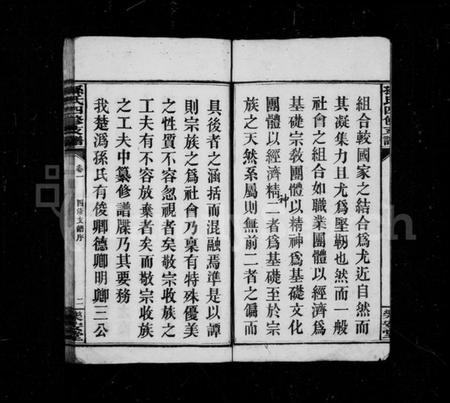 組合較國家之結合爲尤近自然而
其凝集力且尤爲堅韌也然而一般
社會之組合如職業團體以經濟爲
基礎宗教團體以精神爲基礎文化
團體以經濟精神二者爲基礎至於宗
族之天然系屬則無前二者之偏而
孫氏四修支譜
卷一
四修支譜序
二
具後者之涵括而混融焉準是以譚
則宗族之爲社會乃稟有特殊優美
之性質不容忽視者矣敬宗收族之
工夫有不容放棄者矣而敬宗收族
之工夫中纂修譜牒乃其要務
我楚潙孫氏有俊卿德卿明卿三公